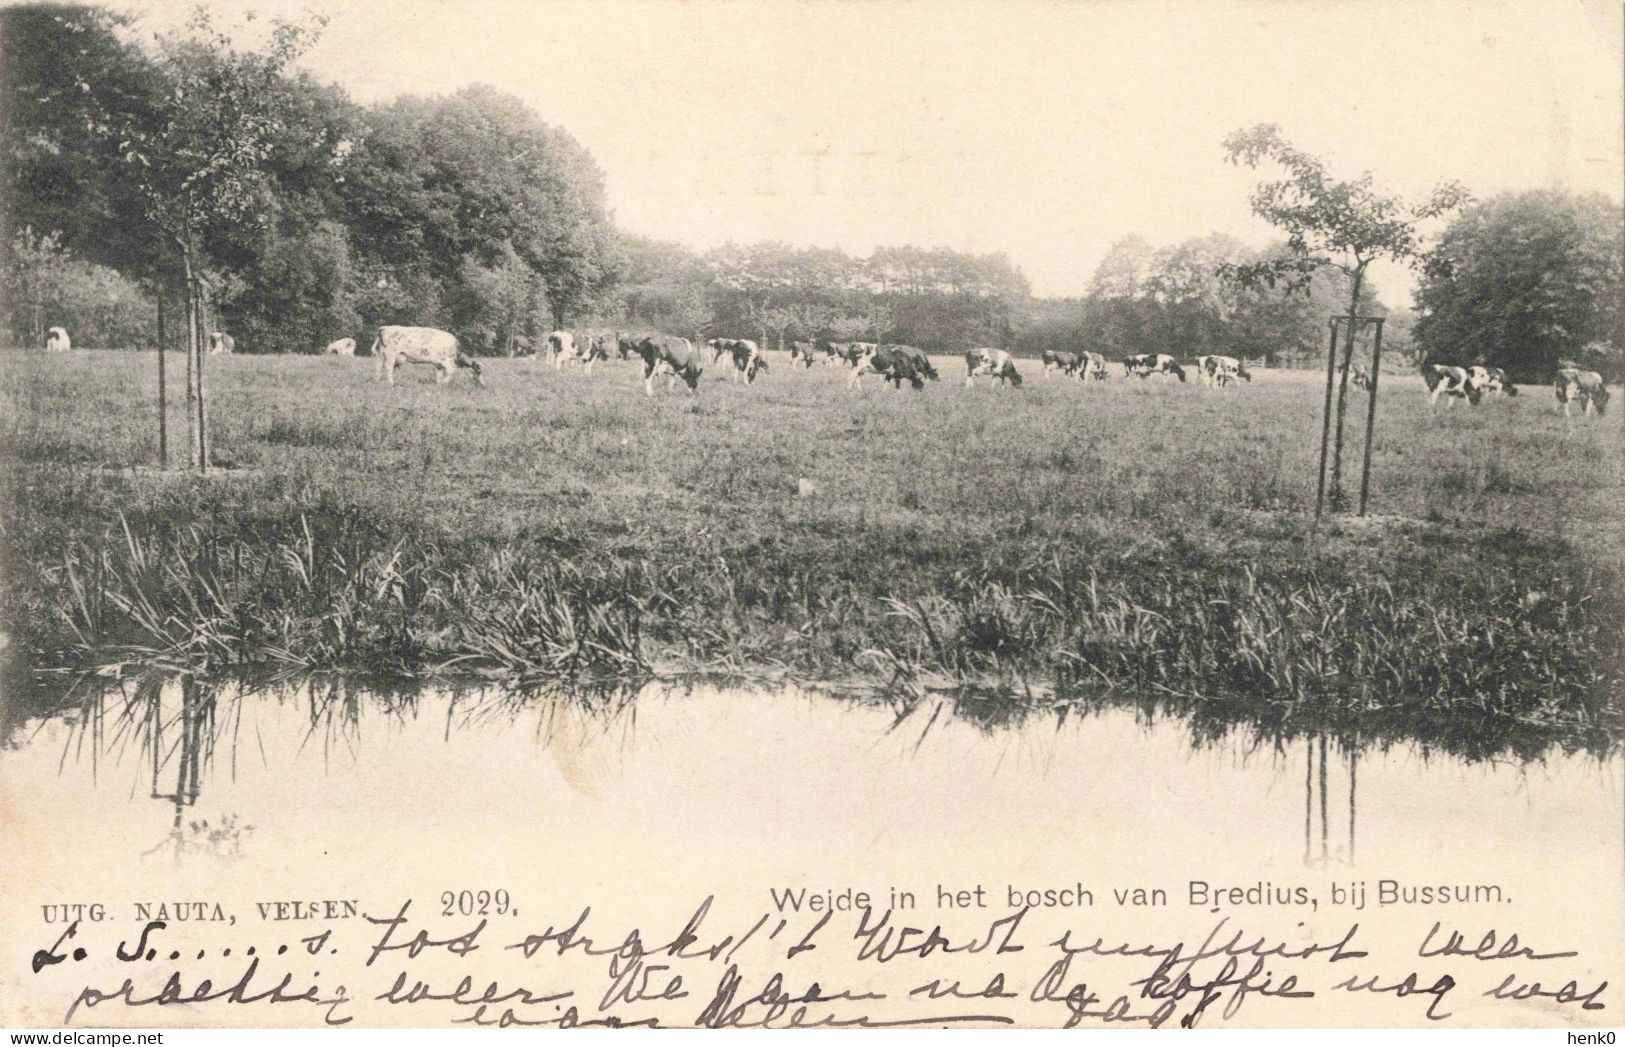 UITG. NAUTA, VELSEN. 2029.
Weide in het bosch van Bredius, bij Bussum.
L. S......s. Tot straks! 't Wordt juist weer
prachtig weer. We gaan na de koffie nog wat
wandelen dag!
www.delcampe.net
henk0